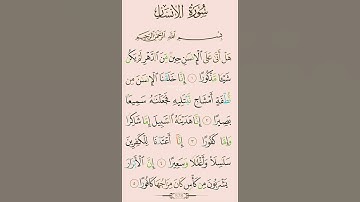 سُورَةُ الْإِنسَانِ
بِسْمِ اللَّهِ الرَّحْمَٰنِ الرَّحِيمِ
هَلْ أَتَىٰ عَلَى الْإِنسَٰنِ حِينٌ مِّنَ الدَّهْرِ لَمْ يَكُن
شَيْـًٔا مَّذْكُورًا ١ إِنَّا خَلَقْنَا الْإِنسَٰنَ مِن
نُّطْفَةٍ أَمْشَاجٍ نَّبْتَلِيهِ فَجَعَلْنَٰهُ سَمِيعًۢا
بَصِيرًا ٢ إِنَّا هَدَيْنَٰهُ السَّبِيلَ إِمَّا شَاكِرًا
وَإِمَّا كَفُورًا ٣ إِنَّآ أَعْتَدْنَا لِلْكَٰفِرِينَ
سَلَٰسِلَا۟ وَأَغْلَٰلًا وَسَعِيرًا ٤ إِنَّ الْأَبْرَارَ
يَشْرَبُونَ مِن كَأْسٍ كَانَ مِزَاجُهَا كَافُورًا ٥